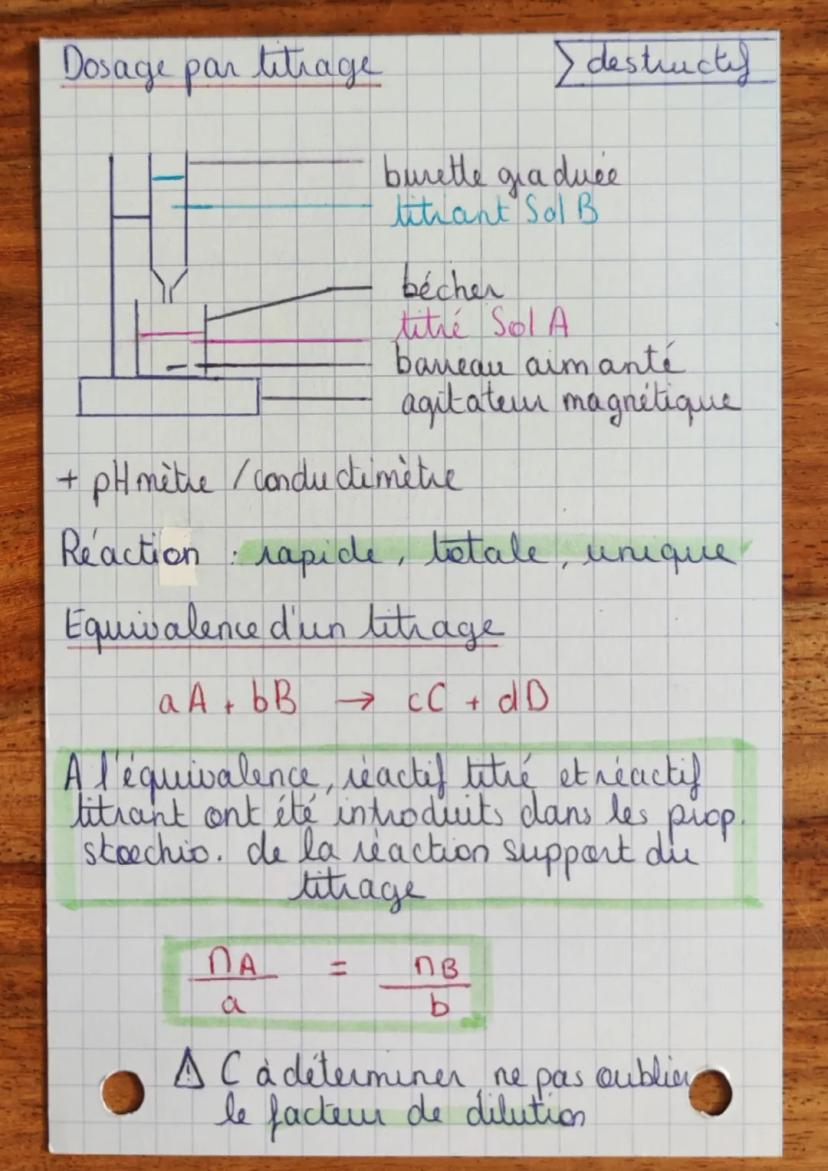 Dosage par titrage
destructif
burette graduée
titrant Sol B
bécher
titré Sol A
barreau aimanté
agitateur magnétique
+ pHmètre / conductimètre
Réaction : rapide, totale, unique
Equivalence d'un titrage
aA + bB → cC + dD
A l'équivalence, réactif titré et réactif
titrant ont été introduits dans les prop.
stoechio. de la réaction support du
titrage
nA/a = nB/b
⚠ C à déterminer, ne pas oublier
le facteur de dilution